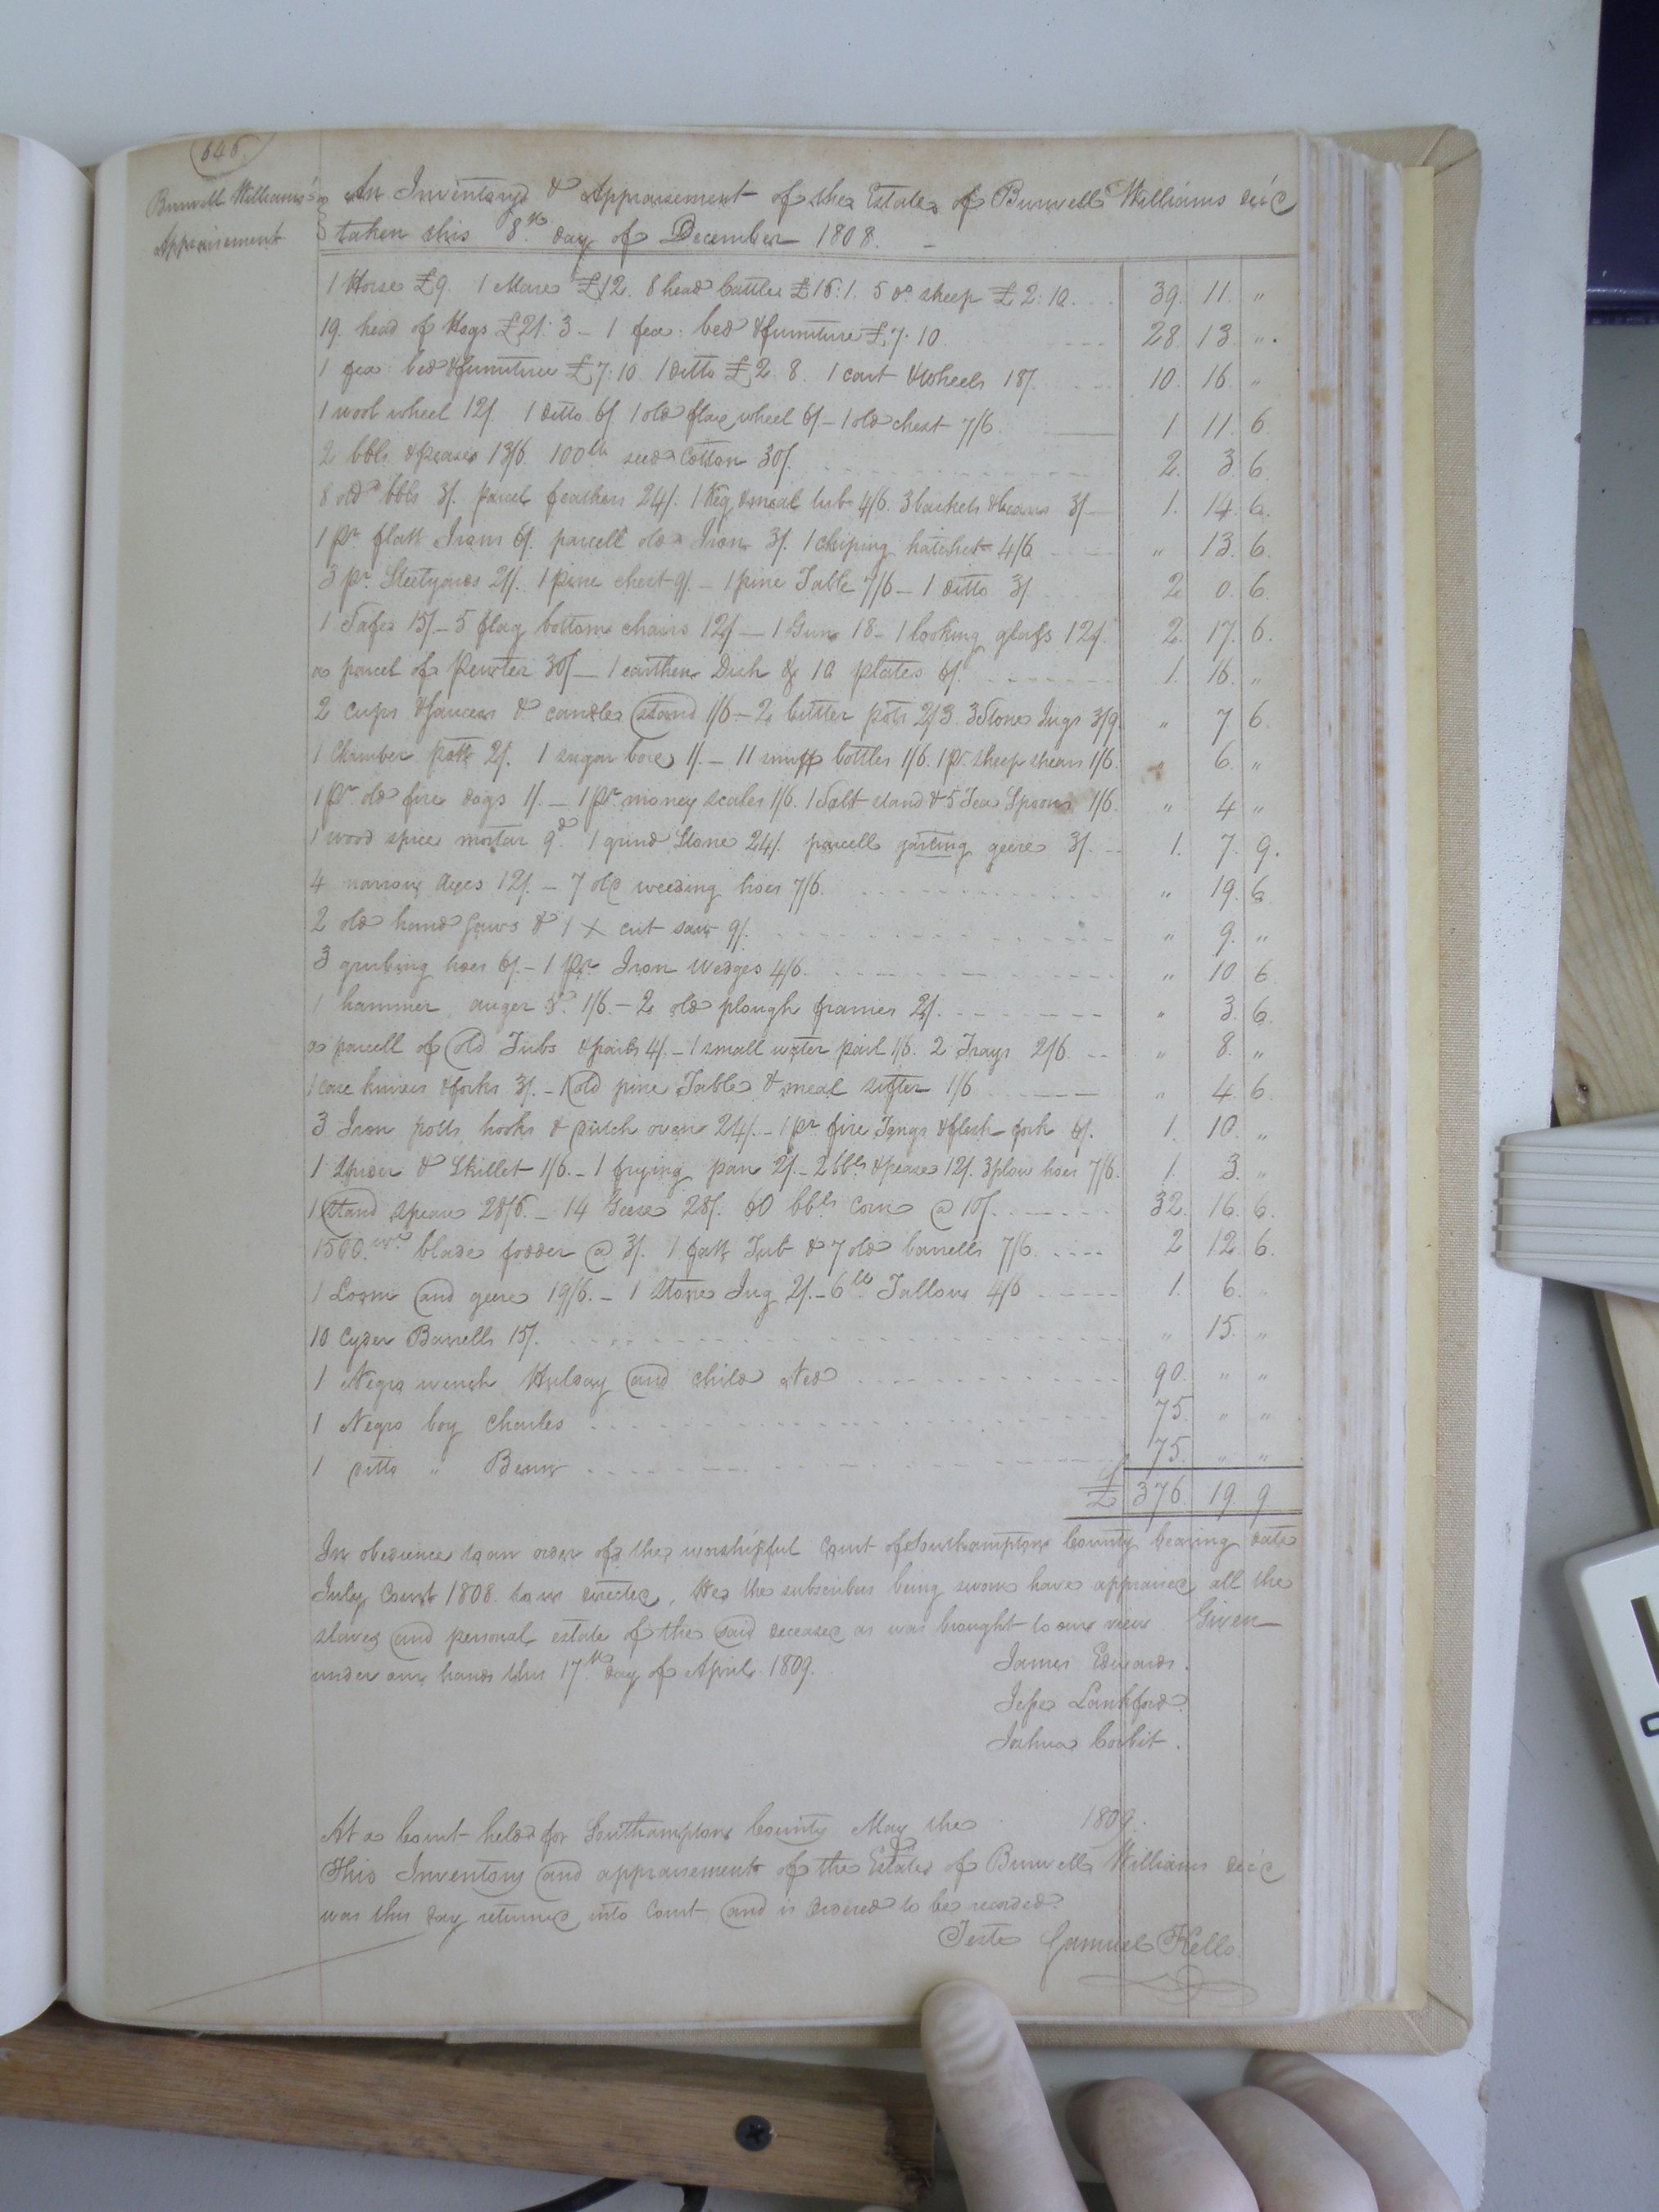 646.
Burwell Williams's
Appraisement
An Inventory & Appraisement of the Estate of Burwell Williams dec'd
taken this 8th day of December 1808. –
1 Horse £9. 1 Mare £12. 8 head Cattle £16:1. 5 do sheep £2:10. 39. 11. "
19. head of Hogs £21:3 – 1 fea: bed & furniture £7:10. 28. 13. "
1 fea: bed & furniture £7:10. 1 ditto £2 8. 1 cart & wheels 18/. 10. 16. "
1 wool wheel 12/. 1 ditto 6/. 1 old flax wheel 6/ – 1 old chest 7/6. 1 11. 6
2 bbls & pease 13/6. 100lb seed Cotton 30/. 2. 3 6.
8 old bbls 3/. parcel feathers 24/. 1 Keg & meal tub 4/6. 3 baskets & beans 3/– 1. 14. 6.
1 pr flatt Irons 6/. parcell old Iron 3/. 1 chiping hatchet 4/6 " 13. 6.
3 pr. Steelyards 21/. 1 pine chest 9/. – 1 pine Table 7/6 – 1 ditto 3/ 2 0. 6.
1 Safe 15/. – 5 flag bottom chairs 12/ – 1 Gun 18 – 1 looking glass 12/. 2. 17. 6.
a parcel of Pewter 30/ – 1 earthen Dish & 10 plates 6/. 1. 16. "
2 cups & saucers & candle stand 1/6 – 2 butter pots 2/3. 3 Stone Jugs 3/9 " 7. 6.
1 Chamber pott 2/. 1 sugar box 1/. – 11 snuff bottles 1/6. 1 pr. sheep shears 1/6. " 6. "
1 pr old fire dogs 1/. – 1 pr. money scales 1/6. 1 Salt stand & 5 Tea Spoons 1/6. " 4 "
1 wood spice mortar 9d 1 grind Stone 24/. parcell geere 3/. 1. 7. 9.
4 narrow Axes 12/. – 7 old weeding hoes 7/6. " 19. 6
2 old hand saws & 1 X cut saw 9/. " 9. "
3 grubing hoes 6/. – 1 pr Iron Wedges 4/6. " 10 6
1 hammer, auger 1/6. – 2 old plough frames 2/. " 3. 6.
a parcell of old Tubs & pails 4/. – 1 small water pail 1/6. 2 Trays 2/6. " 8. "
1 case knives & forks 3/. – 1 old pine Table & meal sifter 1/6 " 4. 6.
3 Iron potts hooks & dutch oven 24/. – 1 pr fire Tongs & flesh fork 6/. 1. 10. "
1 Spider & Skillet 1/6. – 1 frying pan 2/. – 2 bbls & pease 12/. 3 plow hoes 7/6. 1. 3. "
1 stand 28/6. – 14 Geese 28/. 60 bbls corn @ 10/. 32. 16. 6.
1500 wt. blade fodder @ 3/. 1 fatt Tub & 7 old barrells 7/6. 2 12. 6.
1 Loom and geere 19/6. – 1 Stone Jug 2/. – 6lb Tallow 4/6 1. 6. "
10 Cyder Barrells 15/. " 15. "
1 Negro wench Hulday and child Ned 90. " "
1 Negro boy Charles 75. " "
1 ditto " Benn 75. " "
£ 376. 19. 9
In obedience to an order of the worshipful Court of Southampton County bearing date
July Court 1808. to us directed, We the subscribers being sworn have appraised all the
slaves and personal estate of the said deceased as was brought to our view. Given
under our hands this 17th day of April 1809.
James Edwards.
Jesse Lankford.
Joshua Corbit.
At a Court held for Southampton County May the 1809.
This Inventory and appraisement of the Estate of Burwell Williams dec'd
was this day returned into Court and is ordered to be recorded.
Teste Samuel Kello.